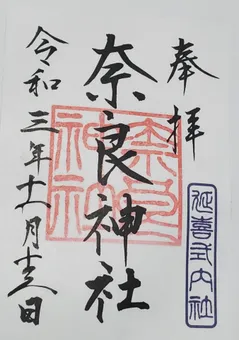 奉拝
延喜式内社
奈良神社
奈良神社
令和三年十一月十三日